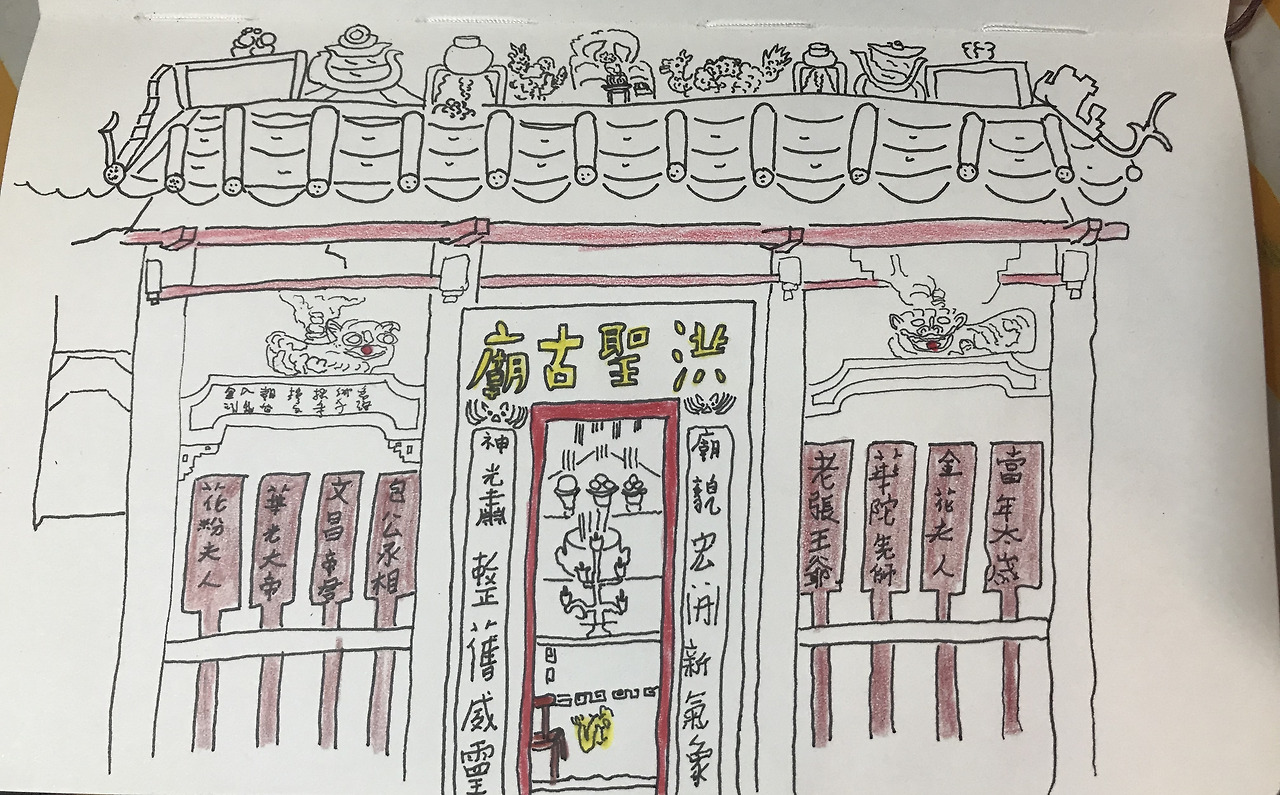 洪聖古廟
廟貌宏開新氣象
神光肅整舊威靈
當年太歲
金花夫人
華陀先師
老張王爺
包公丞相
文昌帝君
華光大帝
花粉夫人